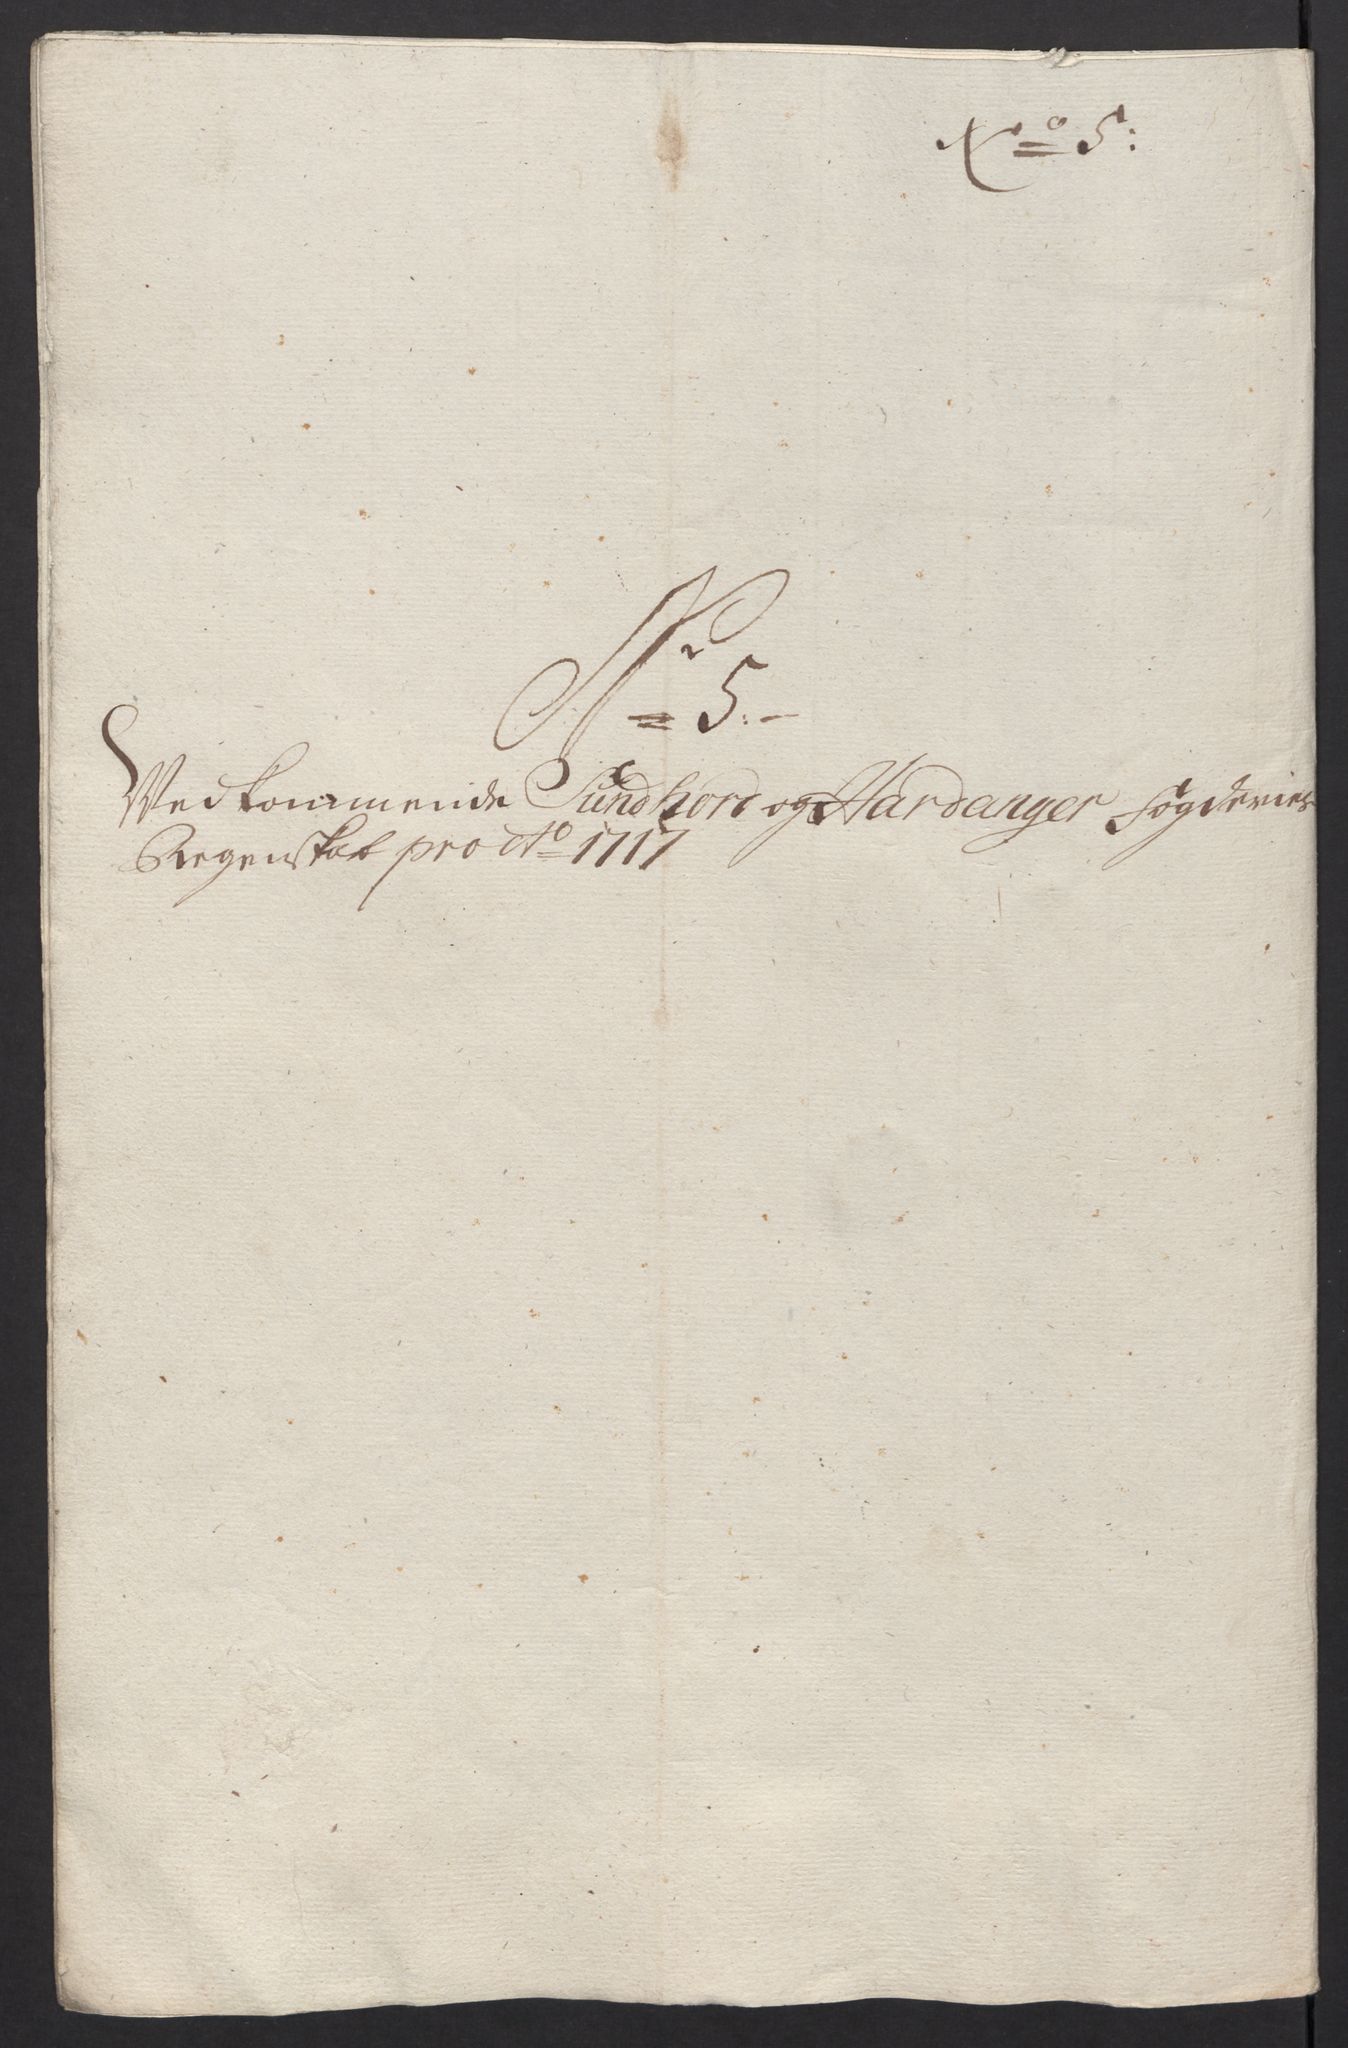 No 5:
Nr 5:
Vedkommende Sundhord og Hardanger Fogderies
Regenskab pro Ao 1717